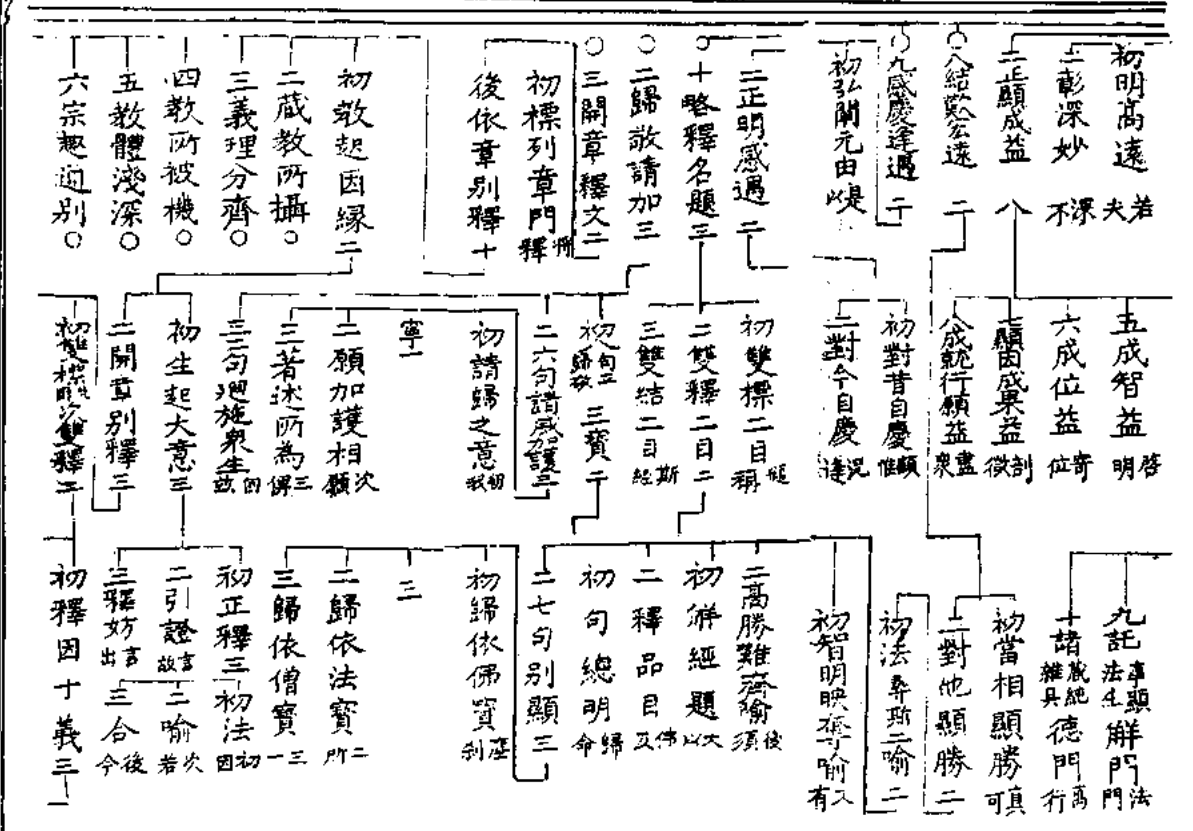 初明高遠 若夫
二彰深妙 不深
二正顯成益 八
八結歎宏遠 二
九感慶逢遇 二
初弘闡元由 以是
二正明感遇 二
十略釋名題 三
二歸敬請加 三
三開章釋文 二
初標列章門 將釋
後依章別釋 十
初教起因緣 二
二藏教所攝
三義理分齊
四教所被機
五教體淺深
六宗趣逈別
五成智益 啓明
六成位益 寄位
七顯因成果益 剖微
八成就行願益 盡衆
初對昔自慶 顧惟
二對今自慶 況逢
初雙標二目
二雙釋二目 二
三雙結二目 斯經
初句 歸敬三寶 二
二六句請威加護 三
初請歸之意
寧一
二願加護相 次願
三著述所為 三俾
三二句廻施衆生 四
初生起大意 三
二開章別釋 三
初雙標 次雙釋 二
九託事顯法生解門 法門
十諸藏純雜具德門 萬行
初當相顯勝 真可
二對他顯勝 二
初法 二喻 二
初智明映奪喻 又有
二高勝難齊喻 後須
初解經題 大以
二釋品目 佛及
初句總明 歸命
二七句別顯 三
初歸依佛寶 塵刹
三
二歸依法寶 二所
三歸依僧寶 三一
初正釋 三
二引證 故言
三釋妨 言出
初法 初因
二喻 次若
三合 後今
初釋因十義 三